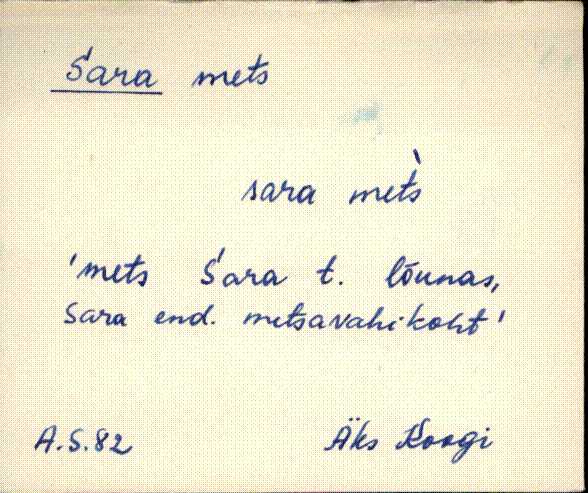 Sara mets
sara met̀s
'mets Sara t. lõunas,
Sara end. metsavahikoht'
A.S.82 Äks Koogi